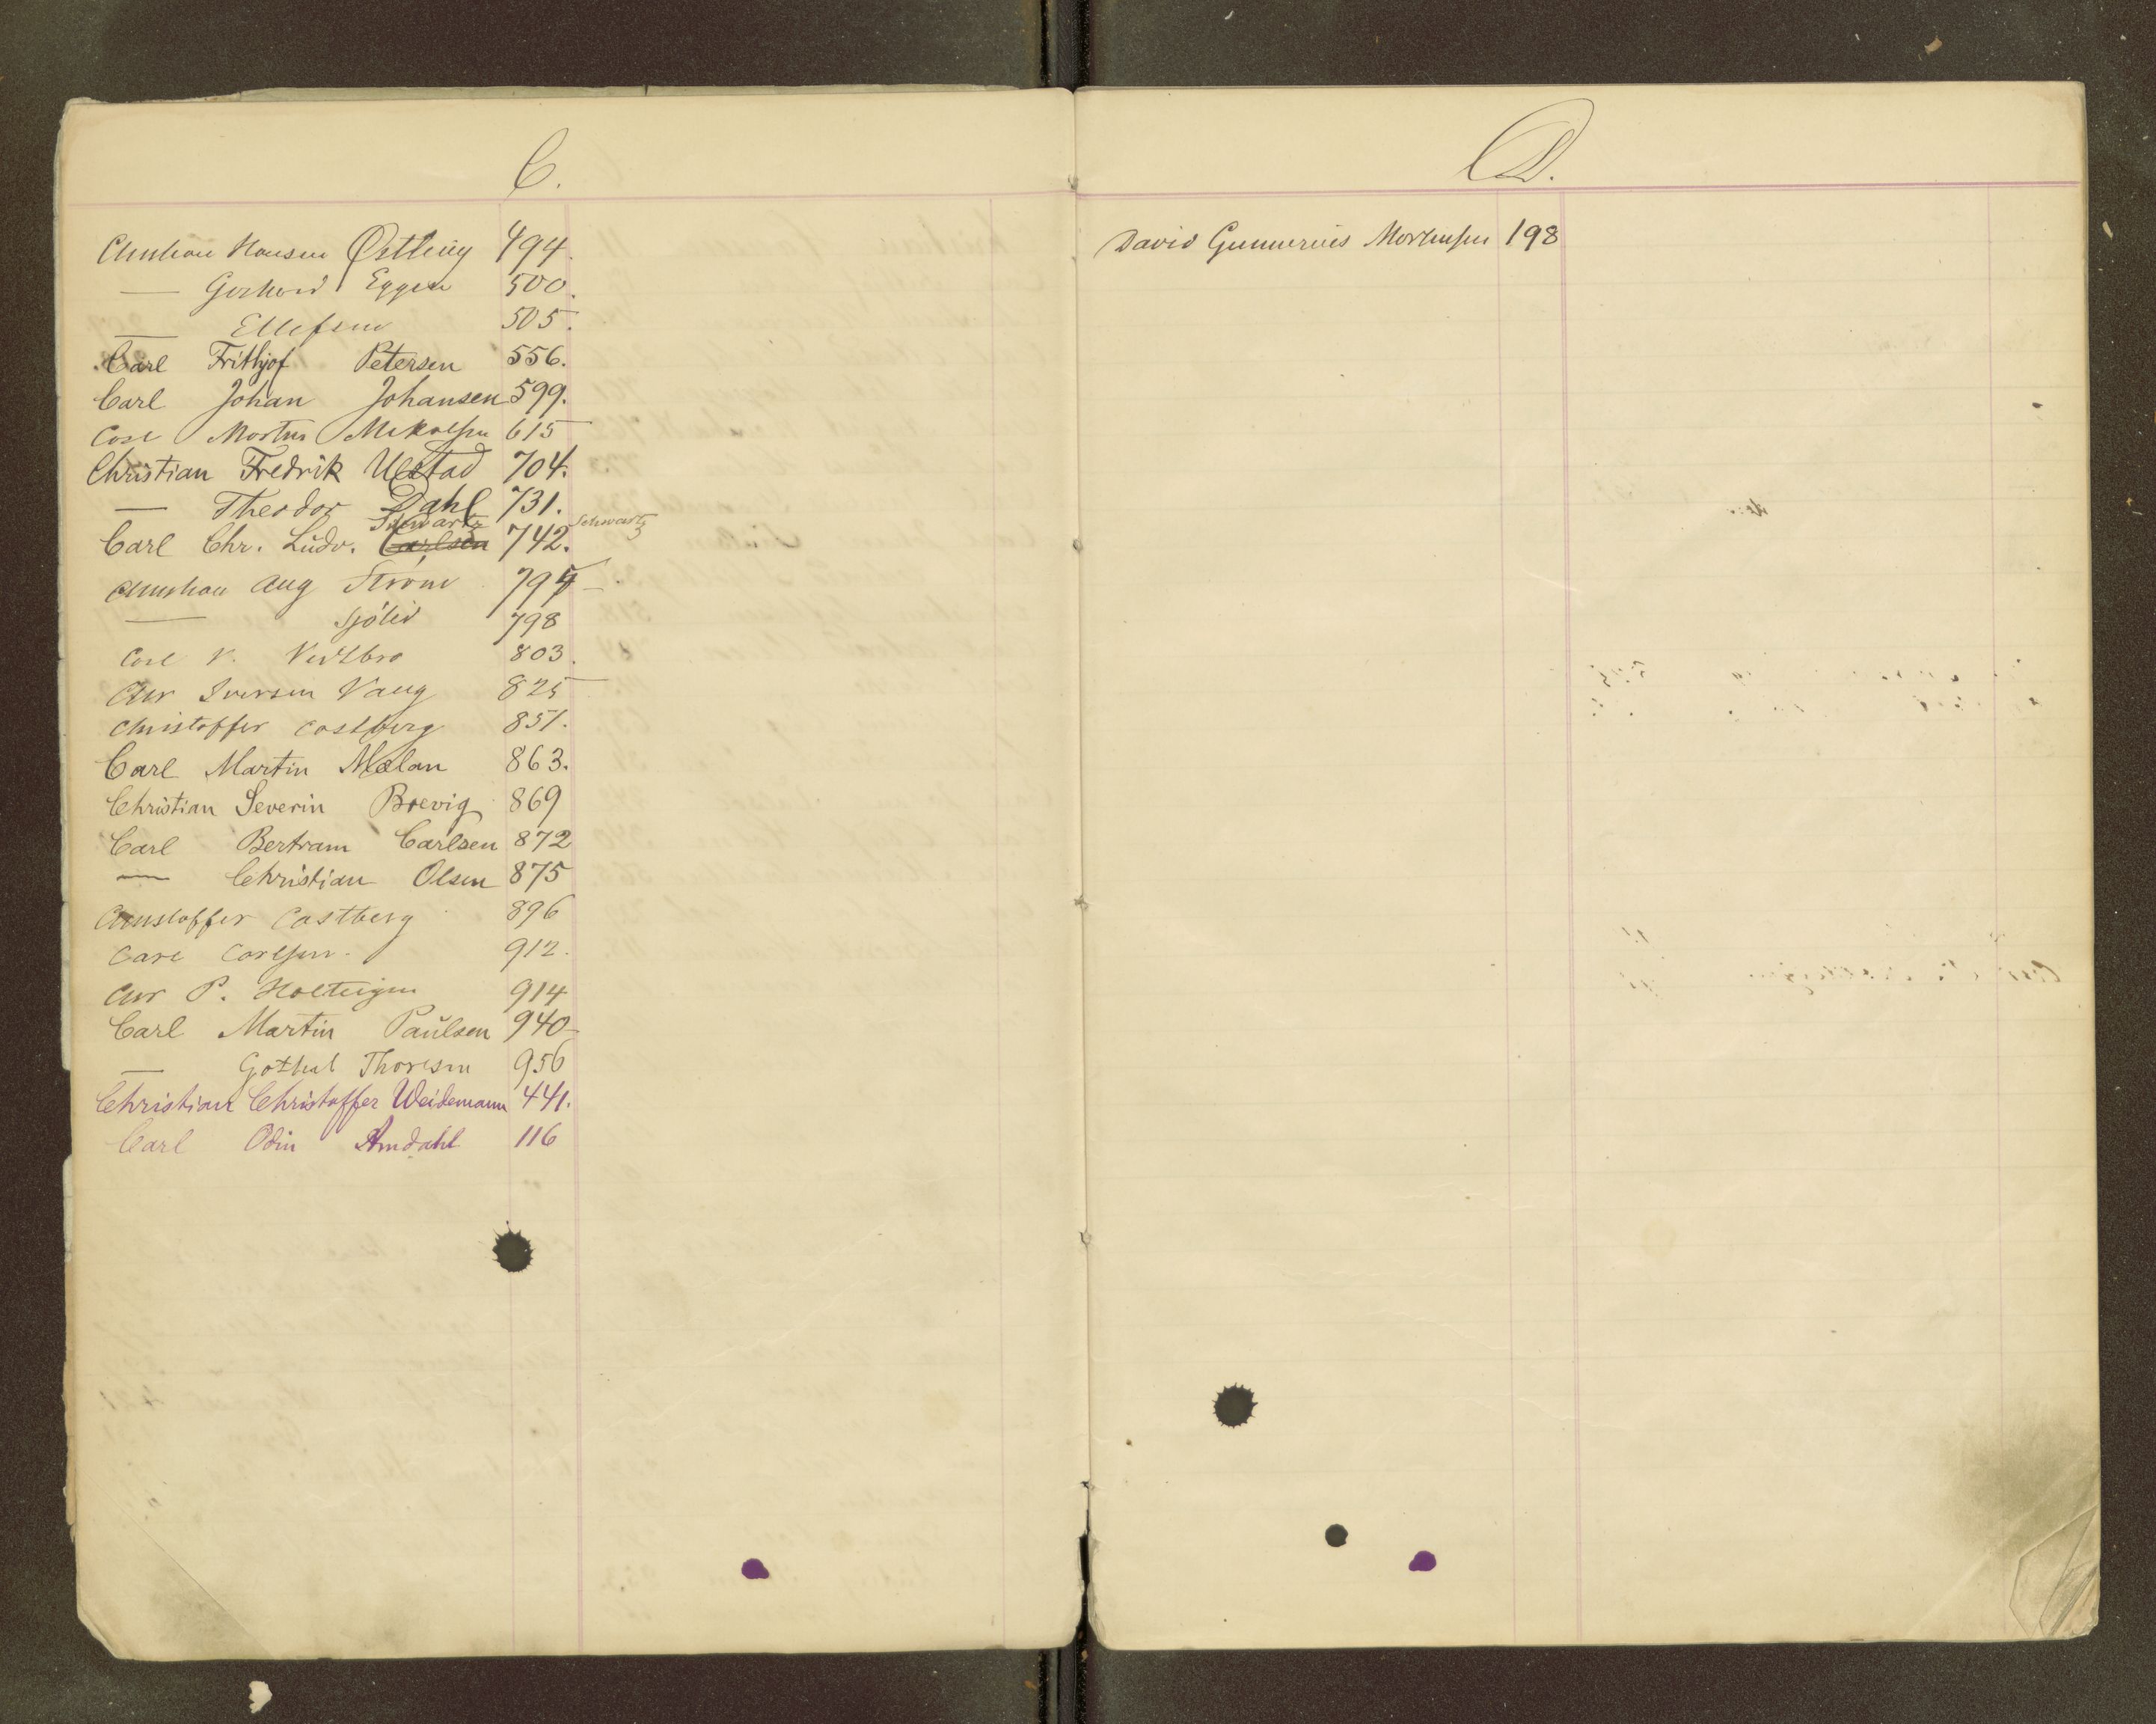 C.
Christian Hansen Østling 494.
— Gerhard Eggen 500.
— Ellefsen 505.
Carl Frithjof Petersen 556.
Carl Johan Johansen 599.
Carl Morten Mikalsen 615
Christian Fredrik Ulstad 704.
— Theodor Dahl 731.
Schwartz Schwartz
Carl Chr. Ludv. Carlsen 742.
Christian Aug Strøm 795
— Sjölid 798
Carl V. 803.
Chr Iversen Vang 825
Christoffer Castberg 851.
Carl Martin Melan 863.
Christian Severin Brevig 869
Carl Bertram Carlsen 872
— Christian Olsen 875
Christoffer Castberg 896
Carl Carlsen. 912.
Chr P. Holteigen 914
Carl Martin Paulsen 940
— Thoresen 956
Christian Christoffer Weidemann 441.
Carl Odin Amdahl 116
D.
David Gunnerius Mortensen 198